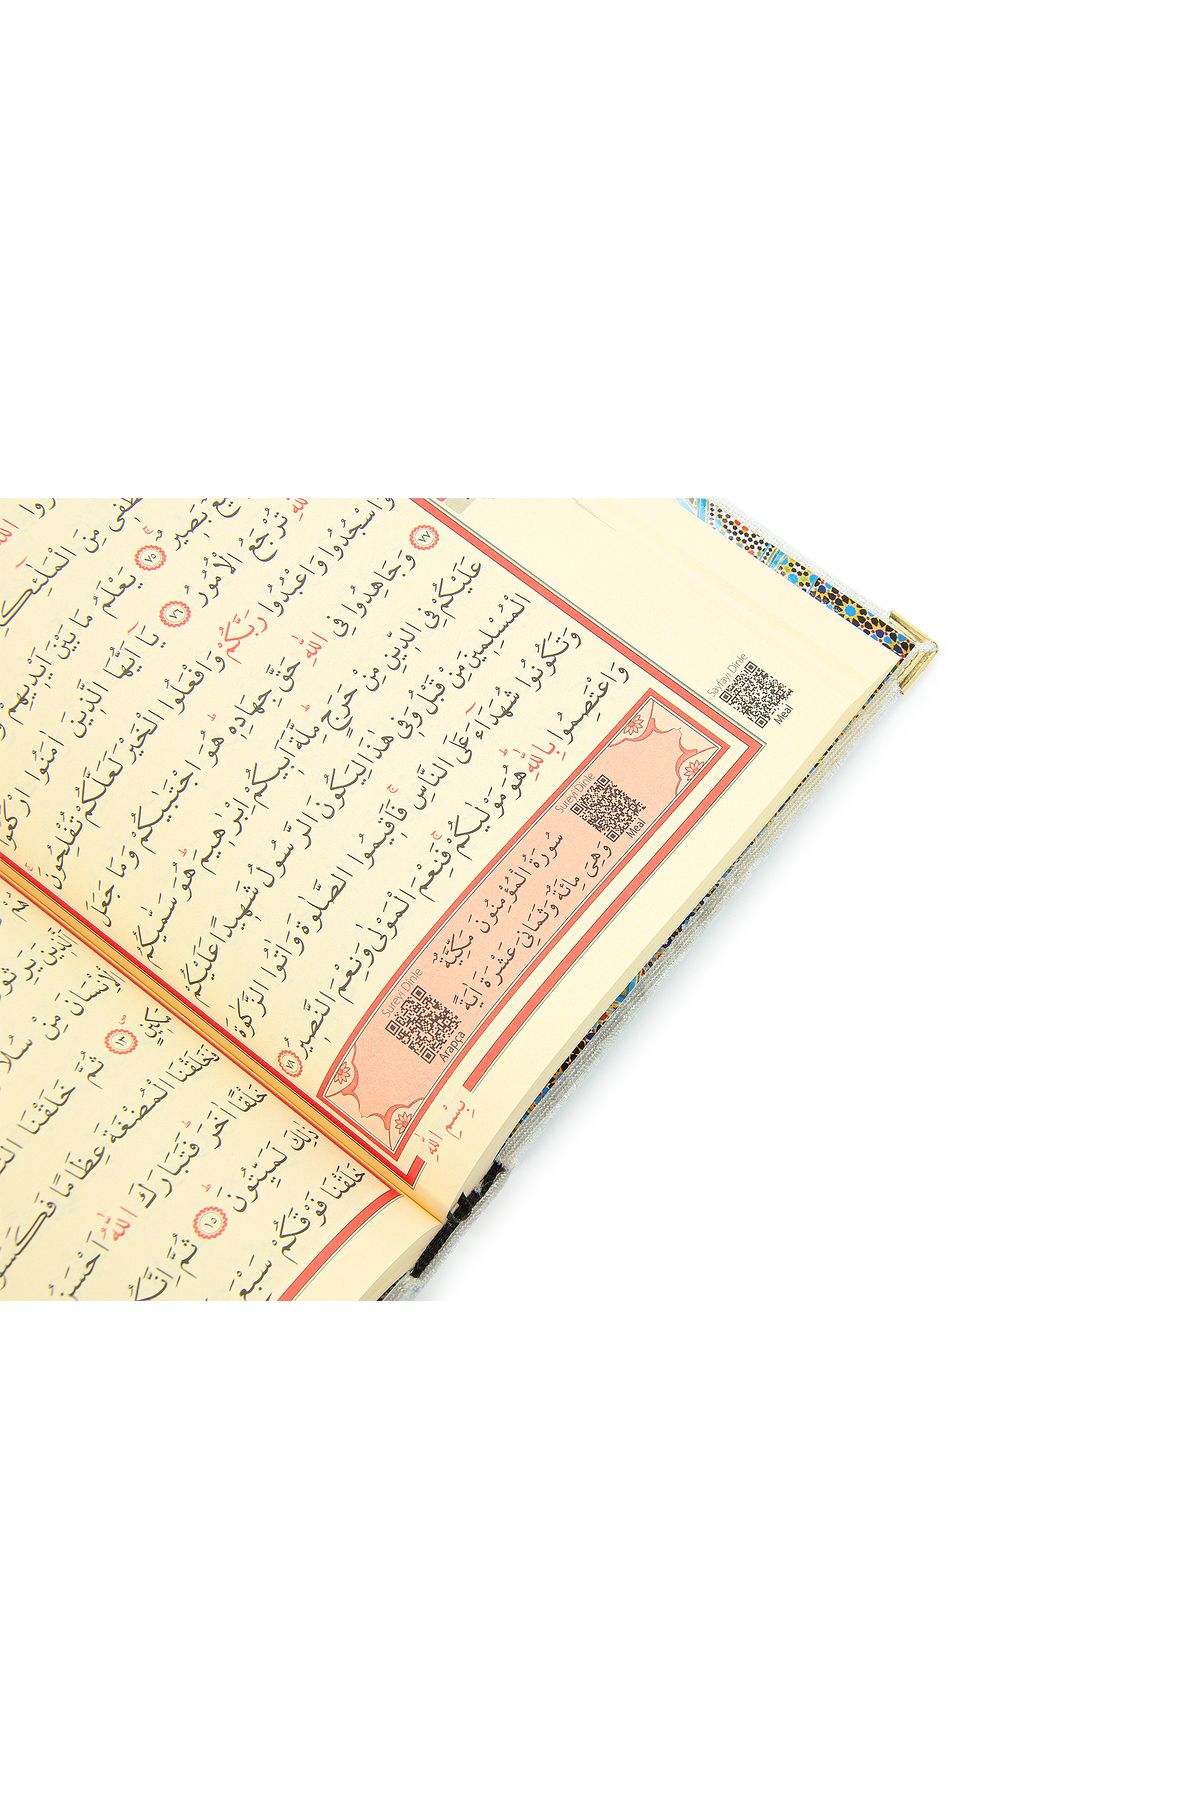 صْطَفٰى مِنَ الْمَلٰٓئِكَةِ
بَصٖيرٌ ٧٥ يَعْلَمُ مَا بَيْنَ اَيْدٖيهِمْ
تُرْجَعُ الْاُمُورُ ٧٦ يَٓا اَيُّهَا الَّذٖينَ اٰمَنُوا ارْكَعُوا
وَاسْجُدُوا وَاعْبُدُوا رَبَّكُمْ وَافْعَلُوا الْخَيْرَ لَعَلَّكُمْ تُفْلِحُونَ
٧٧ وَجَاهِدُوا فِي اللّٰهِ حَقَّ جِهَادِهٖ هُوَ اجْتَبٰيكُمْ وَمَا جَعَلَ
عَلَيْكُمْ فِي الدّٖينِ مِنْ حَرَجٍ مِلَّةَ اَبٖيكُمْ اِبْرٰهٖيمَ هُوَ سَمّٰيكُمُ
الْمُسْلِمٖينَ مِنْ قَبْلُ وَفٖي هٰذَا لِيَكُونَ الرَّسُولُ شَهٖيدًا عَلَيْكُمْ
وَتَكُونُوا شُهَدَٓاءَ عَلَى النَّاسِ فَاَقٖيمُوا الصَّلٰوةَ وَاٰتُوا الزَّكٰوةَ
وَاعْتَصِمُوا بِاللّٰهِ هُوَ مَوْلٰيكُمْ فَنِعْمَ الْمَوْلٰى وَنِعْمَ النَّصٖيرُ ٧٨
Sayfayı Dinle
Meal
Sureyi Dinle
Meal
سُورَةُ الْمُؤْمِنُونَ مَكِّيَّةٌ
وَهِيَ مِائَةٌ وَثَمَانِيَ عَشْرَةَ اٰيَةً
Sureyi Dinle
Arapça
بِسْمِ اللّٰهِ
الْاِنْسَانَ مِنْ
مَكٖينٍ ١٣ ثُمَّ خَلَقْنَا
فَخَلَقْنَا الْمُضْغَةَ عِظَامًا فَكَسَوْ
خَلْقًا اٰخَرَ فَتَبَارَكَ اللّٰهُ اَحْسَنُ
ذٰلِكَ لَمَيِّتُونَ ١٥ ثُمَّ اِنَّكُمْ
خَلَقْنَا فَوْقَكُمْ سَبْعَ